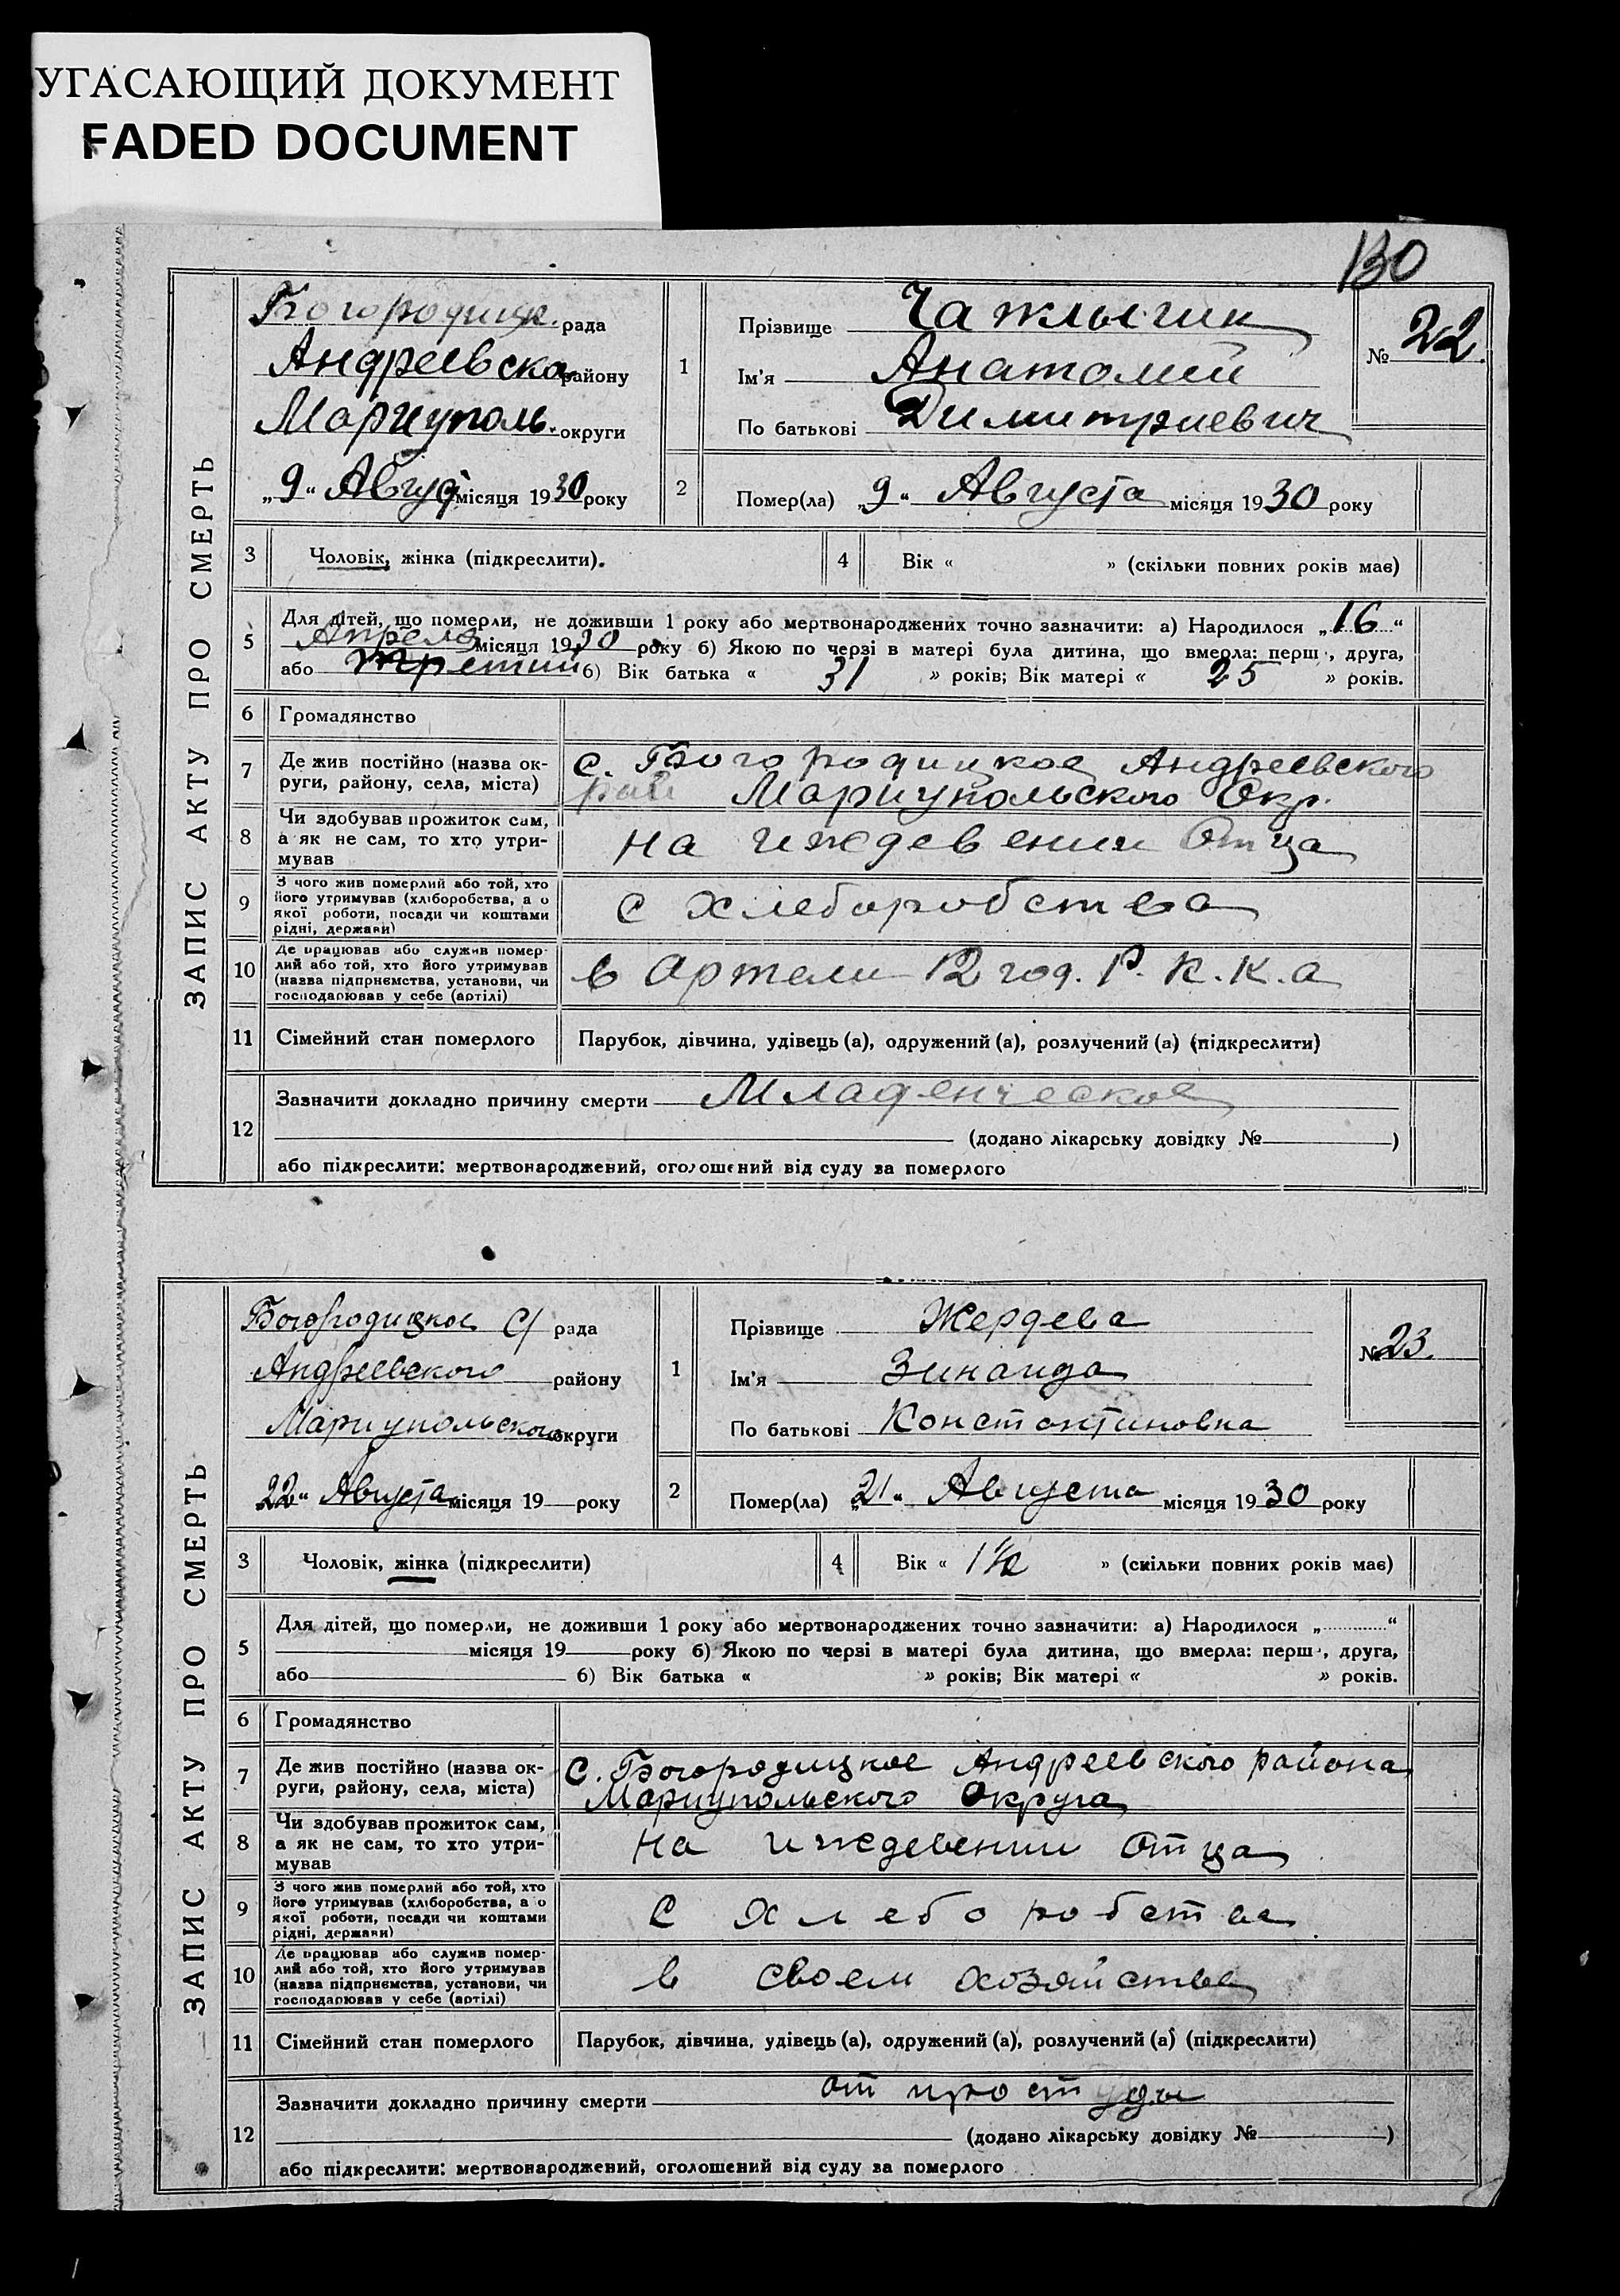 УГАСАЮЩИЙ ДОКУМЕНТ
FADED DOCUMENT
130
ЗАПИС АКТУ ПРО СМЕРТЬ
Богородицк. рада
Андреевско району
Мариуполь. округи
„9“ Август місяця 1930 року
1
Прізвище Чажлыгин
Ім'я Анатолий
По батькові Димитриевич
№ 22.
2
Помер(ла) „9“ Августа місяця 1930 року
3 Чоловік, жінка (підкреслити).
4 Вік « » (скільки повних років має)
5
Для дітей, що померли, не доживши 1 року або мертвонароджених точно зазначити: а) Народилося „16“
Апреля місяця 1930 року б) Якою по черзі в матері була дитина, що вмерла: перш , друга,
або третий б) Вік батька « 31 » років; Вік матері « 25 » років.
6 Громадянство
7
Де жив постійно (назва ок-
руги, району, села, міста)
с. Богородицкое Андреевского
рай Мариупольского Окр.
8
Чи здобував прожиток сам,
а як не сам, то хто утри-
мував
на иждевении Отца
9
З чого жив померлий або той, хто
його утримував (хліборобства, а о
якої роботи, посади чи коштами
рідні, держави)
с хлеборобства
10
Де працював або служив помер-
лий або той, хто його утримував
(назва підприємства, установи, чи
господарював у себе (артілі)
в Артели 12 год. Р. К. К. а
11 Сімейний стан померлого
Парубок, дівчина, удівець (а), одружений (а), розлучений (а) (підкреслити)
12
Зазначити докладно причину смерти Младенческое
(додано лікарську довідку № )
або підкреслити: мертвонароджений, оголошений від суду за померлого
ЗАПИС АКТУ ПРО СМЕРТЬ
Богородицкое С/ рада
Андреевского району
Мариупольского округи
22“ Августа місяця 19 року
1
Прізвище Жердева
Ім'я Зинаида
По батькові Константиновна
№ 23.
2
Помер(ла) „21“ Августа місяця 1930 року
3 Чоловік, жінка (підкреслити)
4 Вік « 1½ » (скільки повних років має)
5
Для дітей, що померли, не доживши 1 року або мертвонароджених точно зазначити: а) Народилося „ “
місяця 19 року б) Якою по черзі в матері була дитина, що вмерла: перш , друга,
або б) Вік батька « » років; Вік матері « » років.
6 Громадянство
7
Де жив постійно (назва ок-
руги, району, села, міста)
С. Богородицкое Андреевского района
Мариупольского Округа
8
Чи здобував прожиток сам,
а як не сам, то хто утри-
мував
на иждевении отца
9
З чого жив померлий або той, хто
його утримував (хліборобства, а о
якої роботи, посади чи коштами
рідні, держави)
С хлеборобства
10
Де працював або служив помер-
лий або той, хто його утримував
(назва підприємства, установи, чи
господарював у себе (артілі)
в своем хозяйстве
11 Сімейний стан померлого
Парубок, дівчина, удівець (а), одружений (а), розлучений (а) (підкреслити)
12
Зазначити докладно причину смерти от простуды
(додано лікарську довідку № )
або підкреслити: мертвонароджений, оголошений від суду за померлого